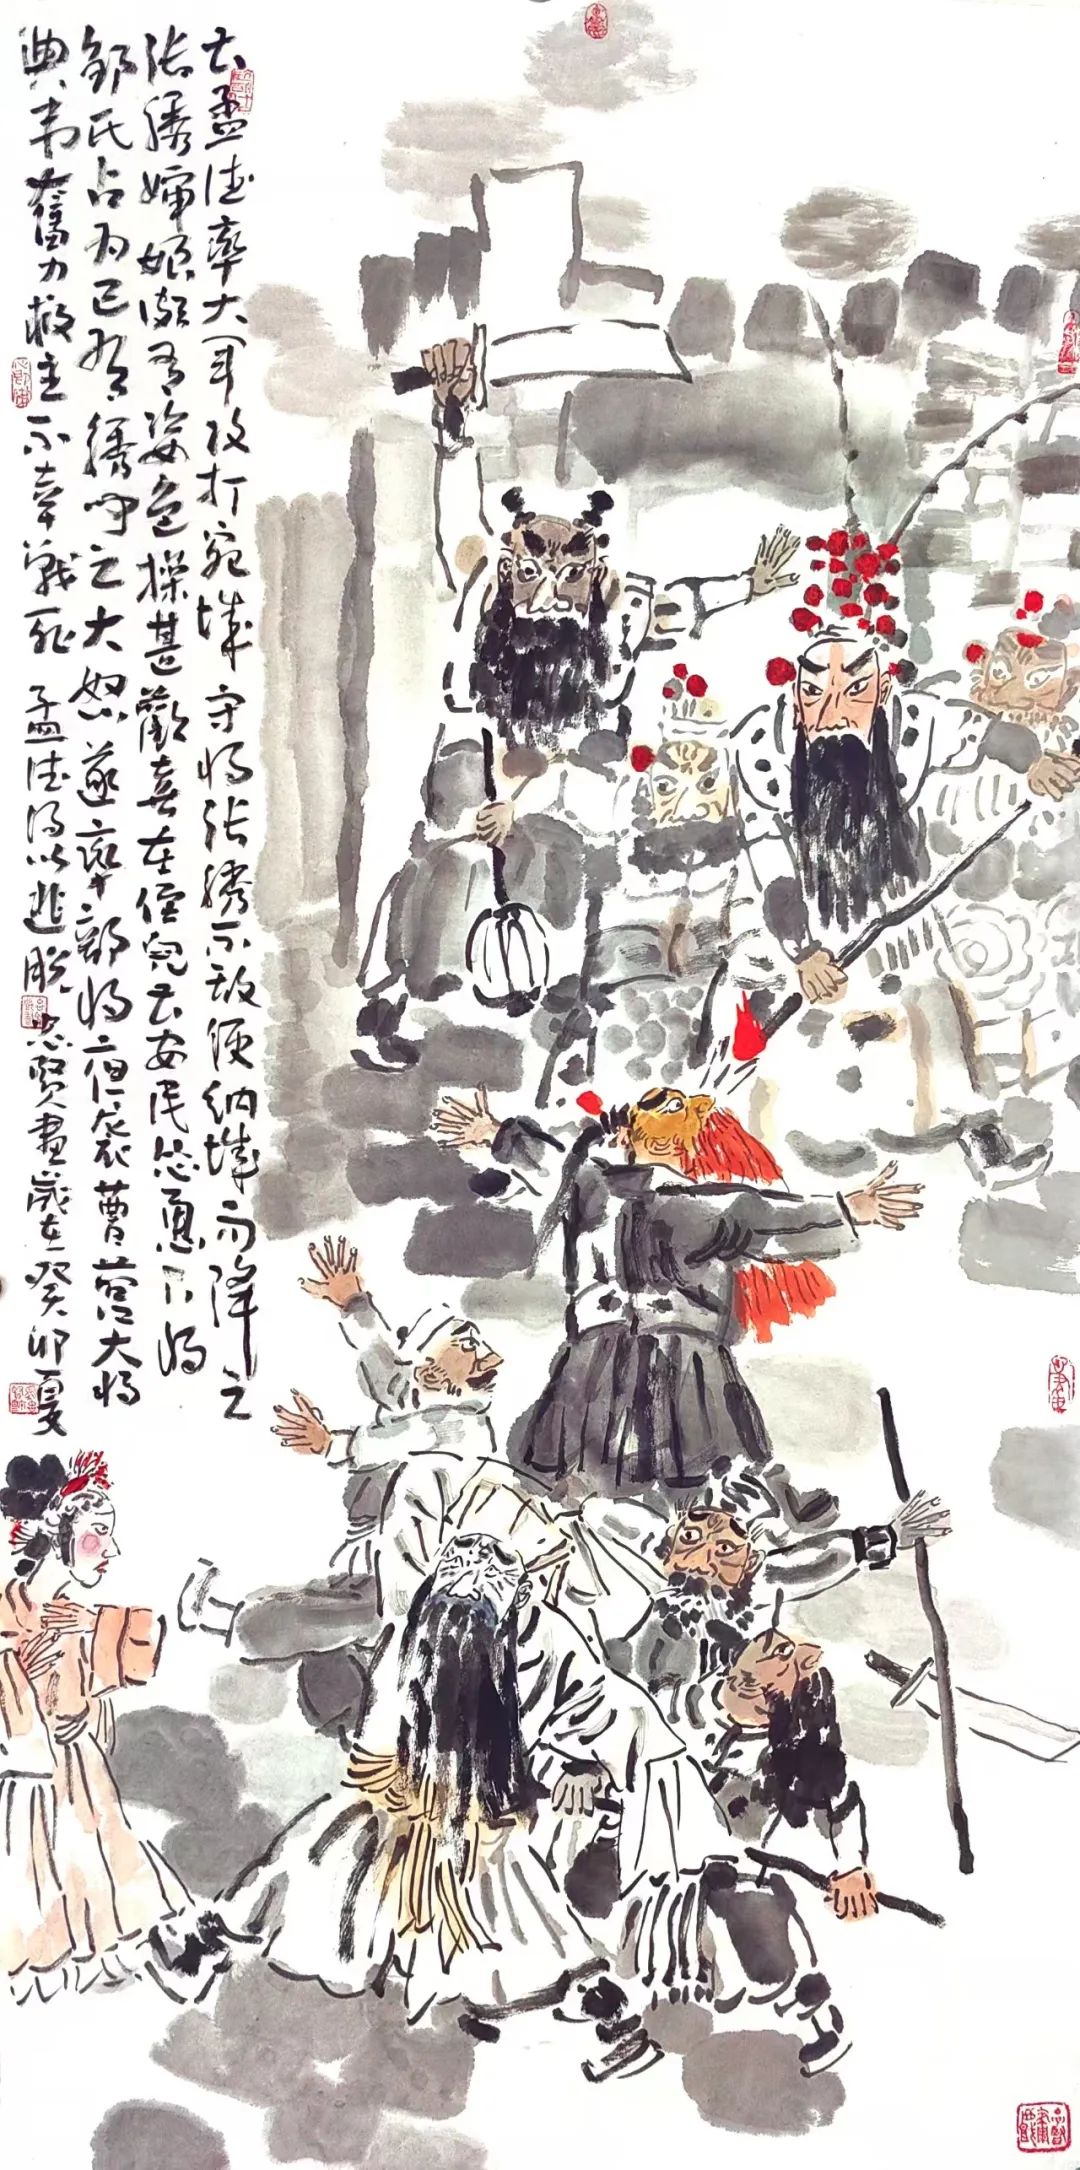 曹孟德率大军攻打宛城守将张绣不敌便纳城而降之
张绣婶娘颇有姿色操甚歡喜在侄儿曹安民怂恿下将
邹氏占为己有绣闻之大怒遂率部将夜袭曹营大将
典韦奮力救主不幸戰死 孟德得以逃脱 忠贤畫歲在癸卯夏